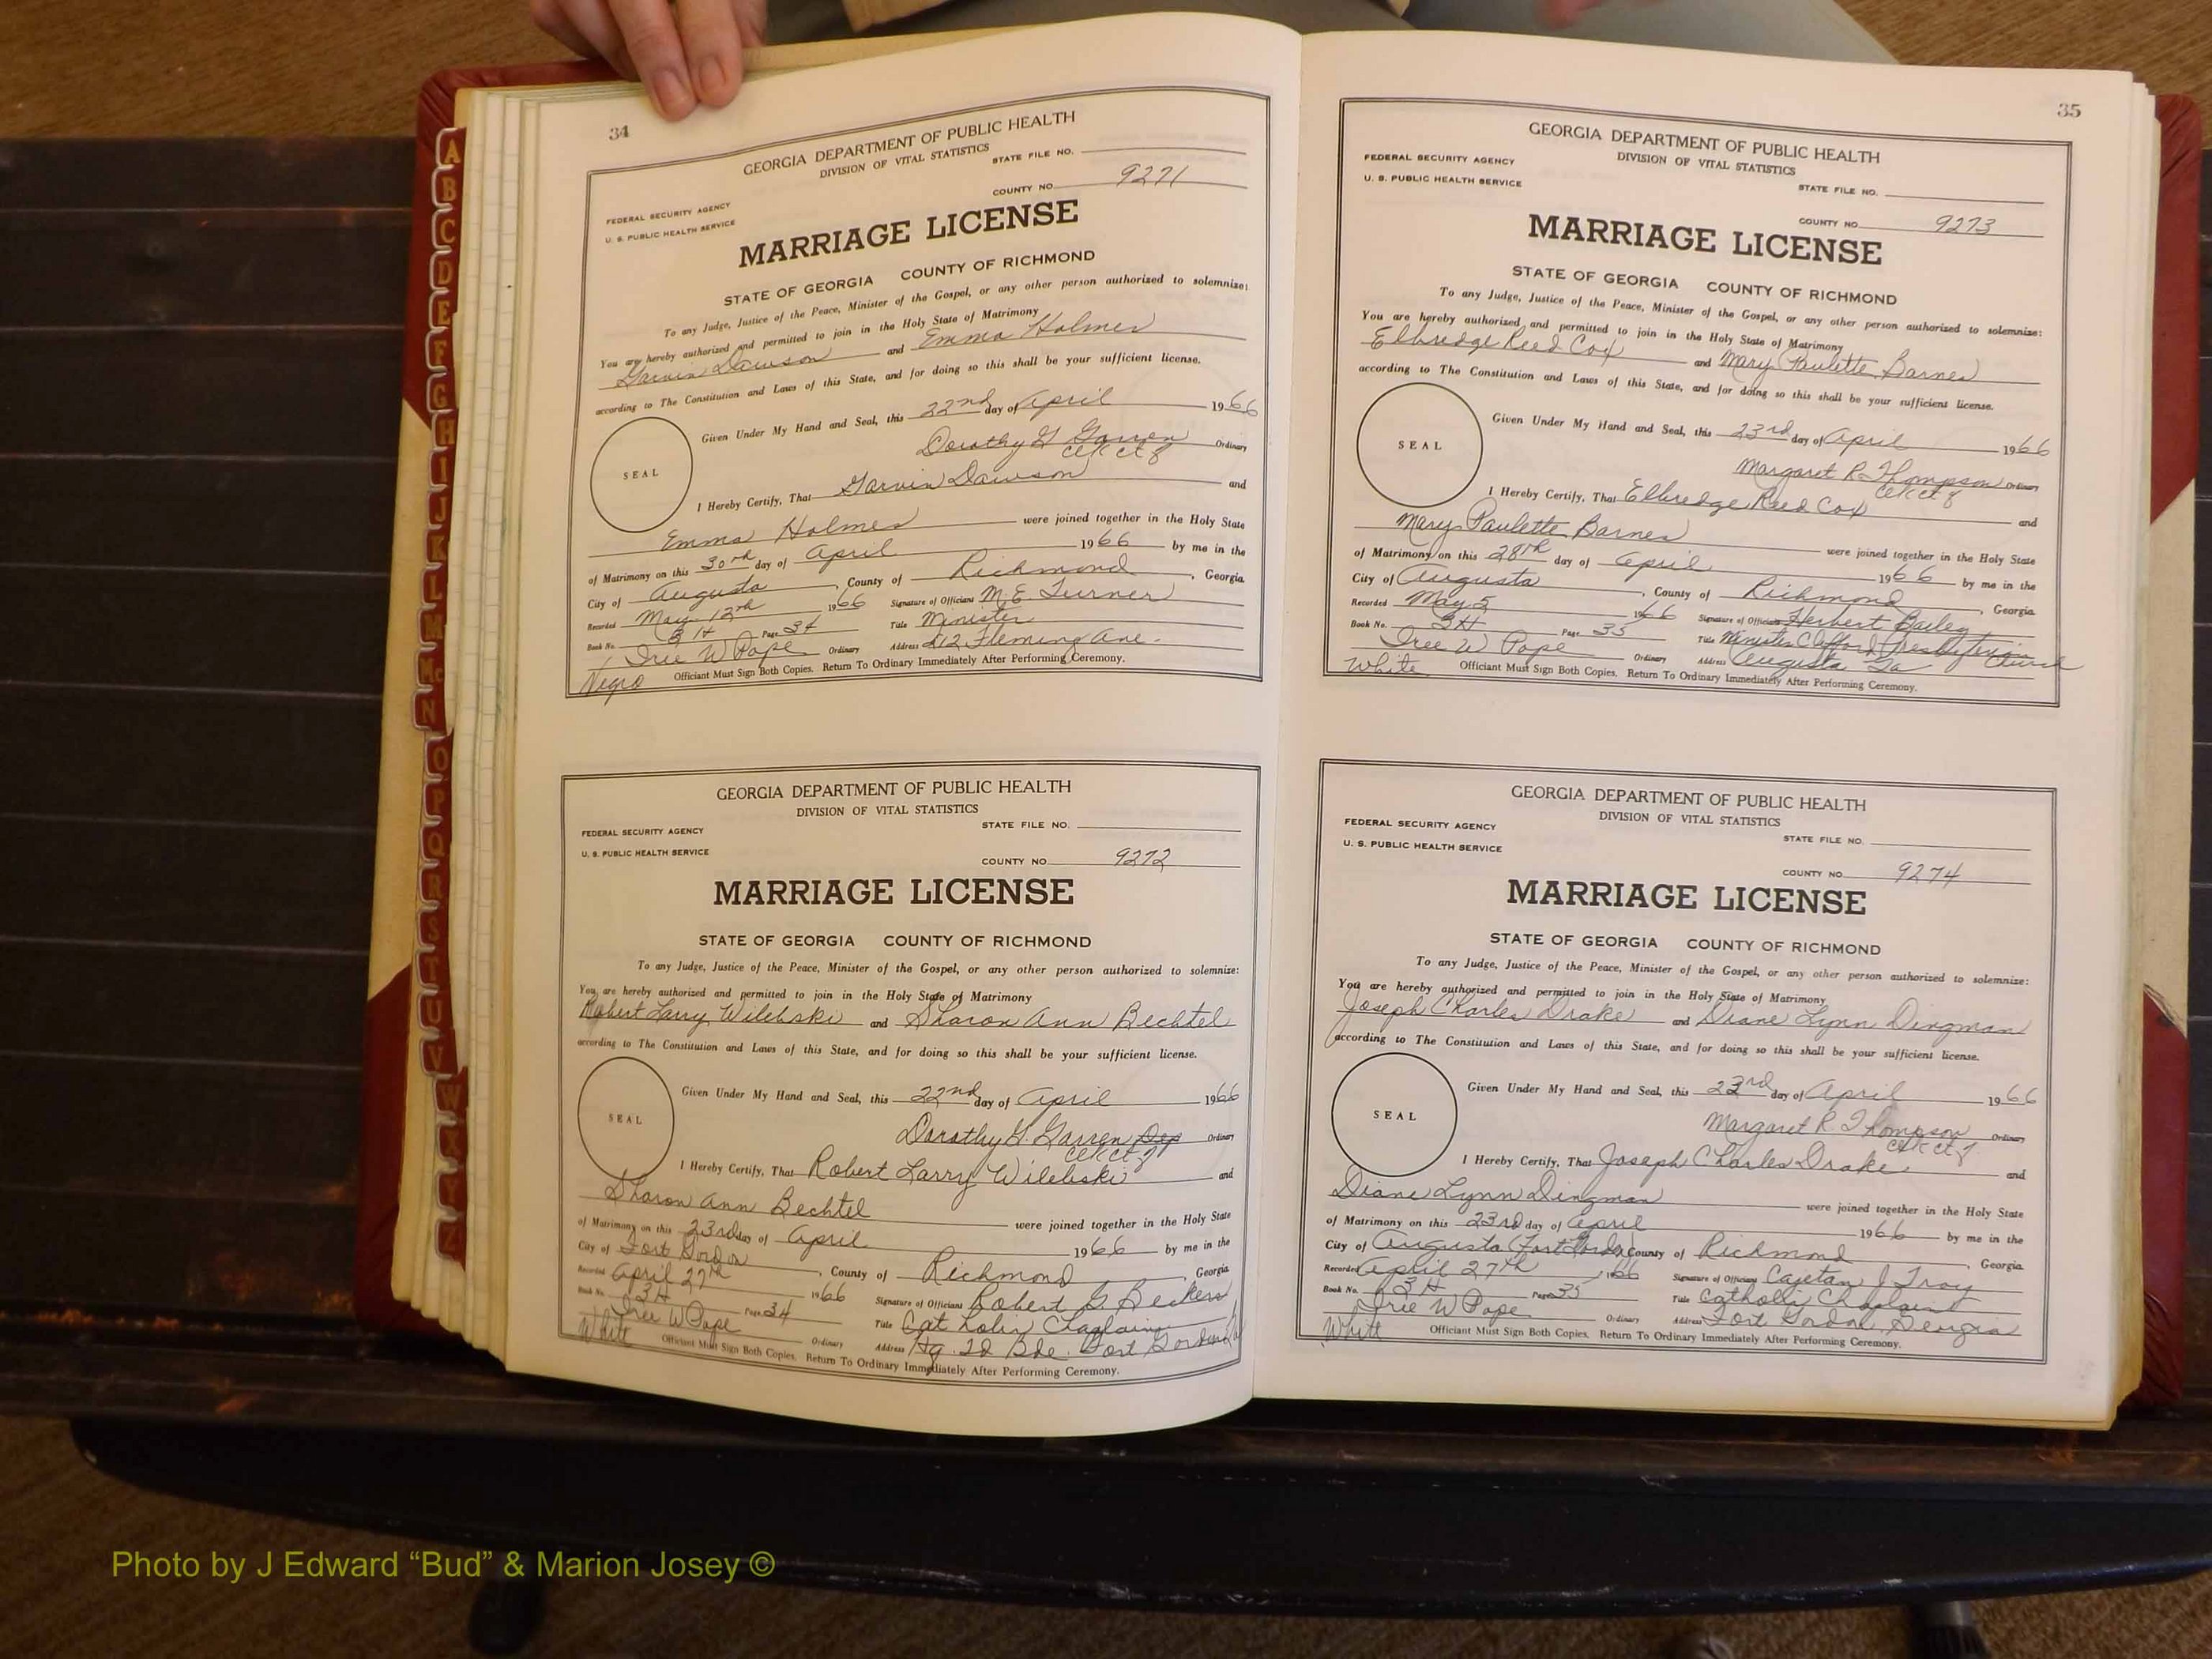 34
GEORGIA DEPARTMENT OF PUBLIC HEALTH
DIVISION OF VITAL STATISTICS
STATE FILE NO.
COUNTY NO. 9271
FEDERAL SECURITY AGENCY
U. S. PUBLIC HEALTH SERVICE
MARRIAGE LICENSE
STATE OF GEORGIA COUNTY OF RICHMOND
To any Judge, Justice of the Peace, Minister of the Gospel, or any other person authorized to solemnize:
You are hereby authorized and permitted to join in the Holy State of Matrimony
Garvin Dawson and Emma Holmes
according to The Constitution and Laws of this State, and for doing so this shall be your sufficient license.
SEAL
Given Under My Hand and Seal, this 22nd day of April 1966
Dorothy G Garren Ordinary
Clk ct
I Hereby Certify, That Garvin Dawson and
Emma Holmes were joined together in the Holy State
of Matrimony on this 30 day of April 1966 by me in the
City of Augusta, County of Richmond, Georgia.
Recorded May 12th 1966 Signature of Officiant M. E. Turner
Book No. 3 H Page 34 Title Minister
Iree W Pope Ordinary Address 412 Fleming Ave.
Negro Officiant Must Sign Both Copies. Return To Ordinary Immediately After Performing Ceremony.
GEORGIA DEPARTMENT OF PUBLIC HEALTH
DIVISION OF VITAL STATISTICS
FEDERAL SECURITY AGENCY STATE FILE NO.
U. S. PUBLIC HEALTH SERVICE
COUNTY NO. 9272
MARRIAGE LICENSE
STATE OF GEORGIA COUNTY OF RICHMOND
To any Judge, Justice of the Peace, Minister of the Gospel, or any other person authorized to solemnize:
You are hereby authorized and permitted to join in the Holy State of Matrimony
Robert Larry Wilebski and Sharon Ann Bechtel
according to The Constitution and Laws of this State, and for doing so this shall be your sufficient license.
SEAL
Given Under My Hand and Seal, this 22nd day of April 1966
Dorothy G. Garren Dep Ordinary
Clk ct
I Hereby Certify, That Robert Larry Wilebski and
Sharon Ann Bechtel were joined together in the Holy State
of Matrimony on this 23rd day of April 1966 by me in the
City of Fort Gordon, County of Richmond, Georgia
Recorded April 27th 1966 Signature of Officiant Robert G. Beckers
Book No. 3H Page 34 Title Catholic Chaplain
Iree W Pope Ordinary Address Hq. 2d Bde. Fort Gordon
White Officiant Must Sign Both Copies. Return To Ordinary Immediately After Performing Ceremony.
35
GEORGIA DEPARTMENT OF PUBLIC HEALTH
DIVISION OF VITAL STATISTICS
FEDERAL SECURITY AGENCY
U. S. PUBLIC HEALTH SERVICE
STATE FILE NO.
COUNTY NO. 9273
MARRIAGE LICENSE
STATE OF GEORGIA COUNTY OF RICHMOND
To any Judge, Justice of the Peace, Minister of the Gospel, or any other person authorized to solemnize:
You are hereby authorized and permitted to join in the Holy State of Matrimony
Elbredge Reed Cox and Mary Paulette Barnes
according to The Constitution and Laws of this State, and for doing so this shall be your sufficient license.
SEAL
Given Under My Hand and Seal, this 23rd day of April 1966
Margaret R. Thompson Ordinary
Clk ct
I Hereby Certify, That Elbredge Reed Cox and
Mary Paulette Barnes were joined together in the Holy State
of Matrimony on this 28th day of April 1966 by me in the
City of Augusta, County of Richmond, Georgia
Recorded May 5 1966 Signature of Officiant Herbert Bailey
Book No. 3H Page 35 Title Minister Clifford Presbyterian Church
Iree W Pope Ordinary Address Augusta Ga
White Officiant Must Sign Both Copies. Return To Ordinary Immediately After Performing Ceremony.
GEORGIA DEPARTMENT OF PUBLIC HEALTH
DIVISION OF VITAL STATISTICS
FEDERAL SECURITY AGENCY
U. S. PUBLIC HEALTH SERVICE
STATE FILE NO.
COUNTY NO. 9274
MARRIAGE LICENSE
STATE OF GEORGIA COUNTY OF RICHMOND
To any Judge, Justice of the Peace, Minister of the Gospel, or any other person authorized to solemnize:
You are hereby authorized and permitted to join in the Holy State of Matrimony
Joseph Charles Drake and Diane Lynn Dingman
according to The Constitution and Laws of this State, and for doing so this shall be your sufficient license.
SEAL
Given Under My Hand and Seal, this 23rd day of April 1966
Margaret R Thompson Ordinary
Clk ct
I Hereby Certify, That Joseph Charles Drake and
Diane Lynn Dingman were joined together in the Holy State
of Matrimony on this 23rd day of April 1966 by me in the
City of Augusta (Fort Gordon) County of Richmond, Georgia.
Recorded April 27th 1966 Signature of Officiant Cajetan J Troy
Book No. 3 H Page 35 Title Catholic Chaplain
Iree W Pope Ordinary Address Fort Gordon, Georgia
White Officiant Must Sign Both Copies. Return To Ordinary Immediately After Performing Ceremony.
A
B
C
D
E
F
G
H
I
J
K
L
M
Mc
N
O
P
Q
R
S
T
U
V
W
X
Y
Z
Photo by J Edward “Bud” & Marion Josey ©